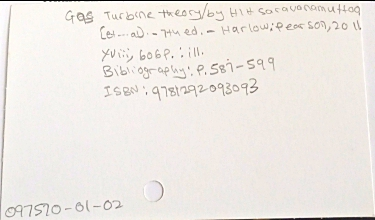 Gas Turbine theory/by HIH saravanamuttoo
[et...al].-7th ed.- Harlow: Pearson, 2011
xviii, 606p.: ill.
Bibliography: P.587-599
ISBN: 9781292093093
097570-01-02